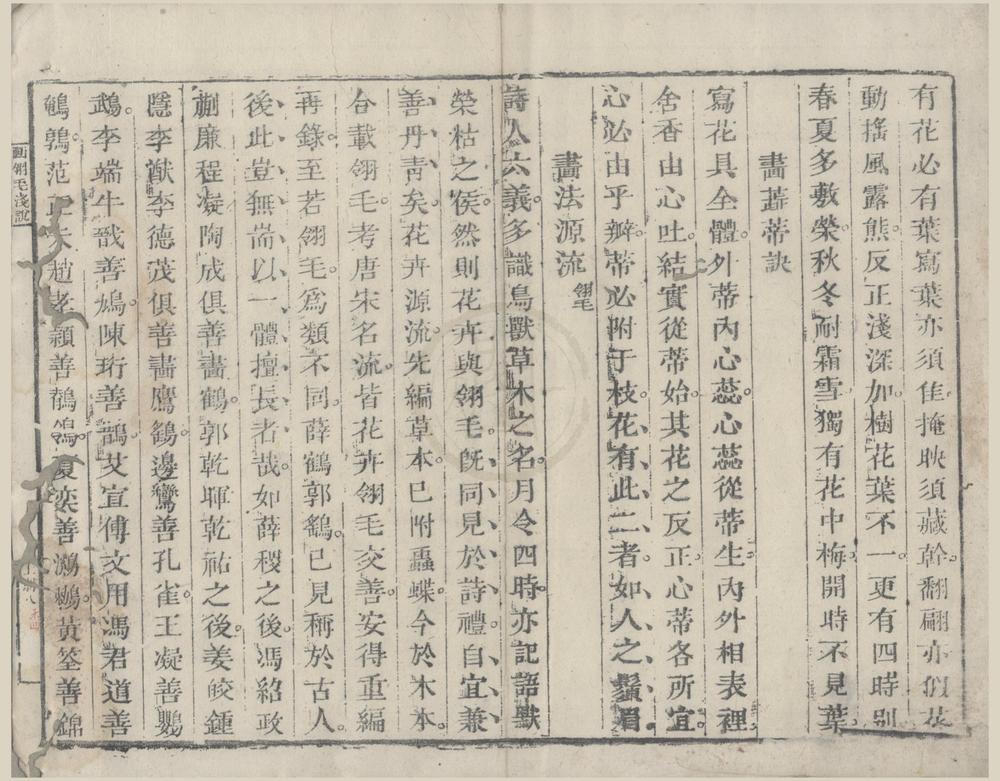 有花必有葉寫葉亦須佳掩映須藏幹翻翩亦假
動搖風露熊反正淺深加樹花葉不一更有四時別
春夏多敷榮秋冬耐霜雪獨有花中梅開時不見葉
畫蒂訣
寫花具全體外蒂內心蕊心蕊從蒂生內外相表裡
舍香由心吐結實從蒂始其花之反正心蒂各所宜
心必由乎瓣蒂必附于枝花有此二者如人之鬚眉
畫法源流 翎毛
詩人六義多識鳥獸草木之名月令四時亦記語默
榮枯之候然則花卉與翎毛旣同見於詩禮自宜兼
善丹青矣花卉源流先編草本巳附蟲蝶今於木本
合載翎毛考唐宋名流皆花卉翎毛交善安得重編
再錄至若翎毛爲類不同薛鶴郭鷂巳見稱於古人
後此豈無耑以一體擅長者哉如薛稷之後馮紹政
蒯廉程凝陶成俱善畫鶴郭乾暉乾祐之後姜皎鍾
隱李猷李德茂俱善畫鷹鷂邊鸞善孔雀王凝善鸚
鵡李端牛戩善鳩陳珩善鵲艾宣傅文用馮君道善
鵪鶉范正夫趙孝穎善鶺鴒夏奕善鸂鶒黃筌善錦
画翎毛淺說